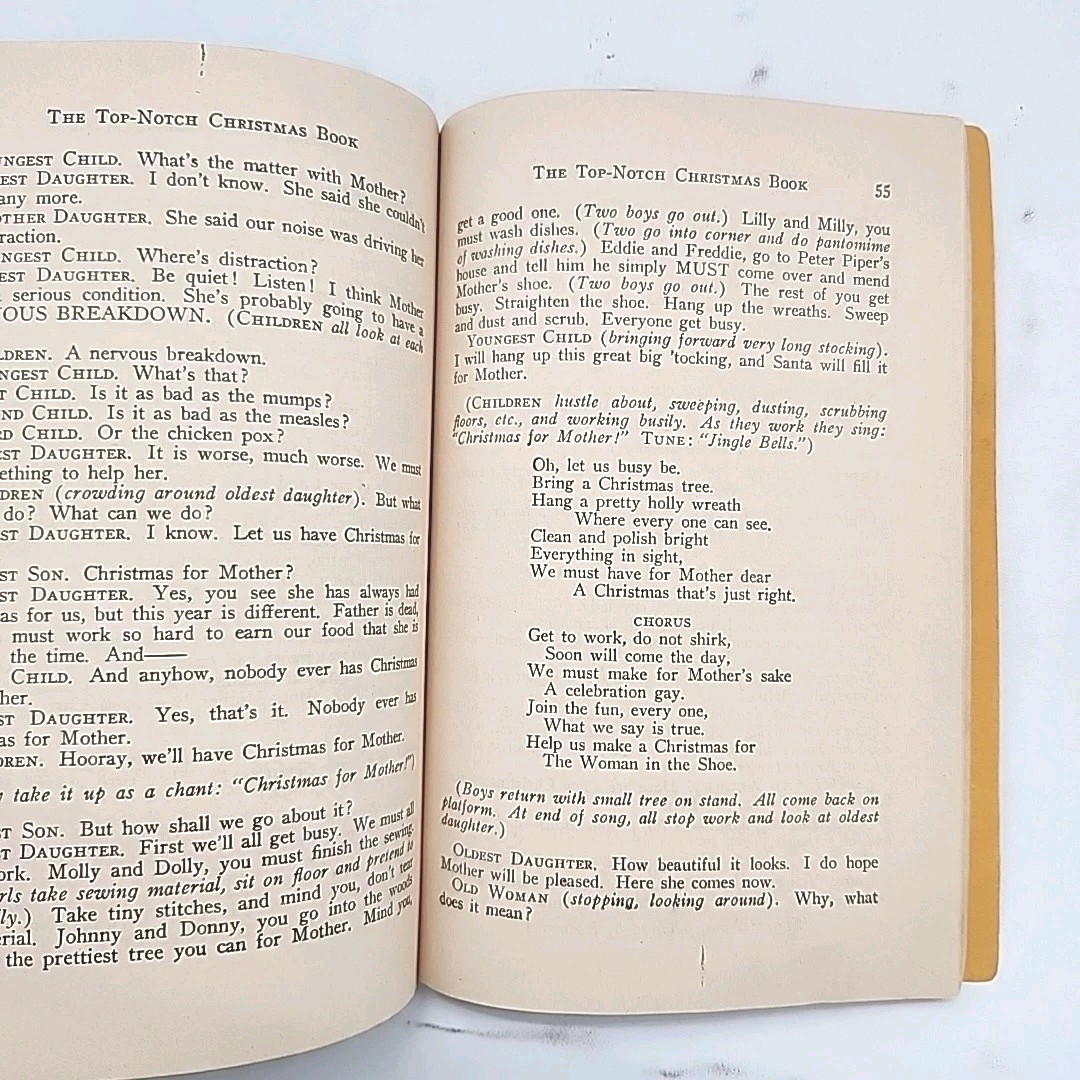 THE TOP-NOTCH CHRISTMAS BOOK
NGEST CHILD. What's the matter with Mother?
EST DAUGHTER. I don't know. She said she couldn't
any more.
OTHER DAUGHTER. She said our noise was driving her
raction.
NGEST CHILD. Where's distraction?
EST DAUGHTER. Be quiet! Listen! I think Mother
serious condition. She's probably going to have a
OUS BREAKDOWN. (CHILDREN all look at each
LDREN. A nervous breakdown.
NGEST CHILD. What's that?
T CHILD. Is it as bad as the mumps?
ND CHILD. Is it as bad as the measles?
RD CHILD. Or the chicken pox?
EST DAUGHTER. It is worse, much worse. We must
ething to help her.
DREN (crowding around oldest daughter). But what
do? What can we do?
ST DAUGHTER. I know. Let us have Christmas for
ST SON. Christmas for Mother?
ST DAUGHTER. Yes, you see she has always had
as for us, but this year is different. Father is dead,
must work so hard to earn our food that she is
the time. And——
CHILD. And anyhow, nobody ever has Christmas
her.
ST DAUGHTER. Yes, that's it. Nobody ever has
as for Mother.
DREN. Hooray, we'll have Christmas for Mother.
y take it up as a chant: "Christmas for Mother!")
T SON. But how shall we go about it?
T DAUGHTER. First we'll all get busy. We must all
ork. Molly and Dolly, you must finish the sewing.
rls take sewing material, sit on floor and pretend to
ly.) Take tiny stitches, and mind you, don't tear
erial. Johnny and Donny, you go into the woods
the prettiest tree you can for Mother. Mind you,
THE TOP-NOTCH CHRISTMAS BOOK 55
get a good one. (Two boys go out.) Lilly and Milly, you
must wash dishes. (Two go into corner and do pantomine
of washing dishes.) Eddie and Freddie, go to Peter Piper's
house and tell him he simply MUST come over and mend
Mother's shoe. (Two boys go out.) The rest of you get
busy. Straighten the shoe. Hang up the wreaths. Sweep
and dust and scrub. Everyone get busy.
YOUNGEST CHILD (bringing forward very long stocking).
I will hang up this great big 'tocking, and Santa will fill it
for Mother.
(CHILDREN hustle about, sweeping, dusting, scrubbing
floors, etc., and working busily. As they work they sing:
"Christmas for Mother!" TUNE: "Jingle Bells.")
Oh, let us busy be.
Bring a Christmas tree.
Hang a pretty holly wreath
Where every one can see.
Clean and polish bright
Everything in sight,
We must have for Mother dear
A Christmas that's just right.
CHORUS
Get to work, do not shirk,
Soon will come the day,
We must make for Mother's sake
A celebration gay.
Join the fun, every one,
What we say is true.
Help us make a Christmas for
The Woman in the Shoe.
(Boys return with small tree on stand. All come back on
platform. At end of song, all stop work and look at oldest
daughter.)
OLDEST DAUGHTER. How beautiful it looks. I do hope
Mother will be pleased. Here she comes now.
OLD WOMAN (stopping, looking around). Why, what
does it mean?